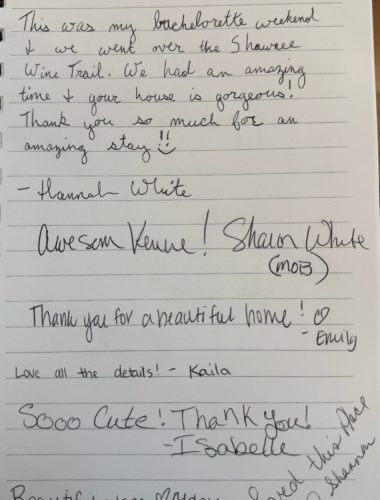 This was my bachelorette weekend
& we went over the Shawnee
Wine Trail. We had an amazing
time & your house is gorgeous!
Thank you so much for an
amazing stay!!
- Hannah White
Awesom Venue! Sharon White
(MOB)
Thank you for a beautiful home! ♡
- Emily
Love all the details! - Kaila
Sooo Cute! Thank you!
- Isabelle
Loved this place
Shannon